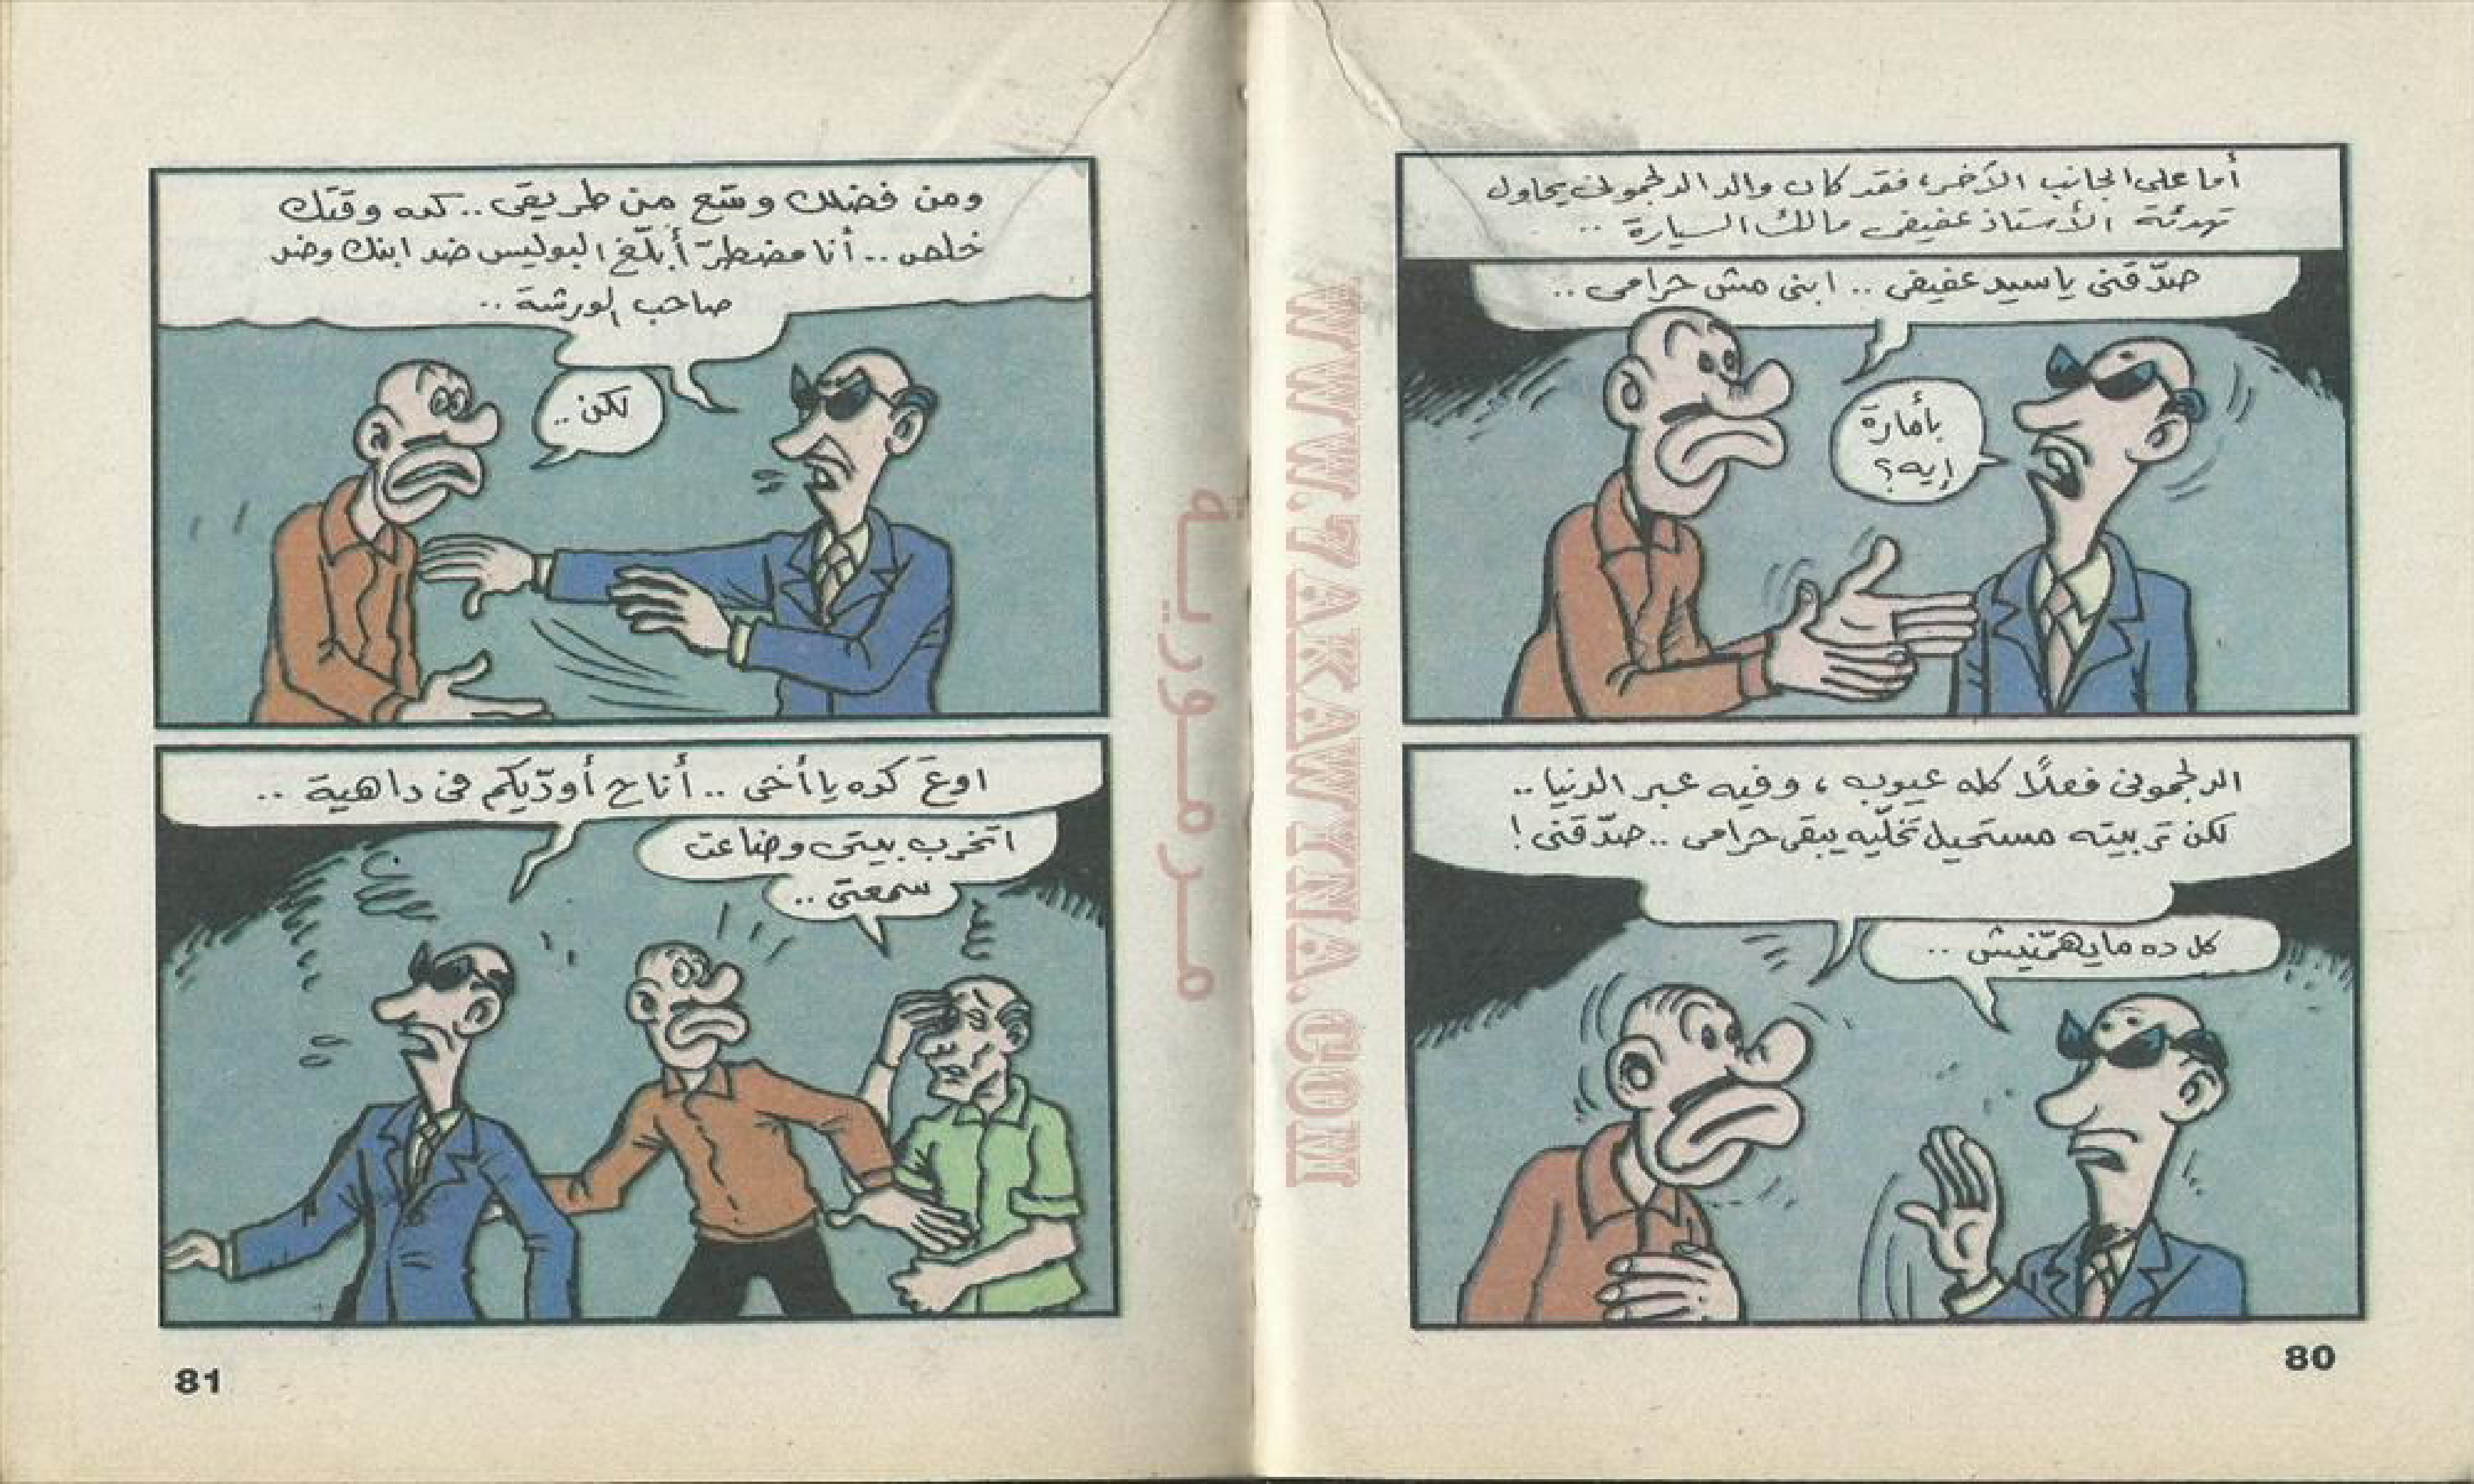 أما على الجانب الآخر، فقد كان والد الدلجمونى يحاول
تهدئة الأستاذ عفيفى مالك السيارة ..
صدّقنى يا سيد عفيفى .. ابنى مش حرامى ..
بأمارة
إيه؟
الدلجمونى فعلًا كله عيوب، وفيه عبر الدنيا ..
لكن تربيته مستحيل تخلّيه يبقى حرامى .. صدّقنى!
كل ده مايهمّنيش ..
80
ومن فضلك وسّع من طريقى .. كده وقتك
خلص .. أنا مضطرّ أبلّغ البوليس ضد ابنك وضد
صاحب الورشة ..
لكن ..
اوعَ كده يا أخى .. أنا ح أودّيكم فى داهية ..
اتخرب بيتى وضاعت
سمعتى ..
81
WWW.7AKAWYINA.COM
مرمورية